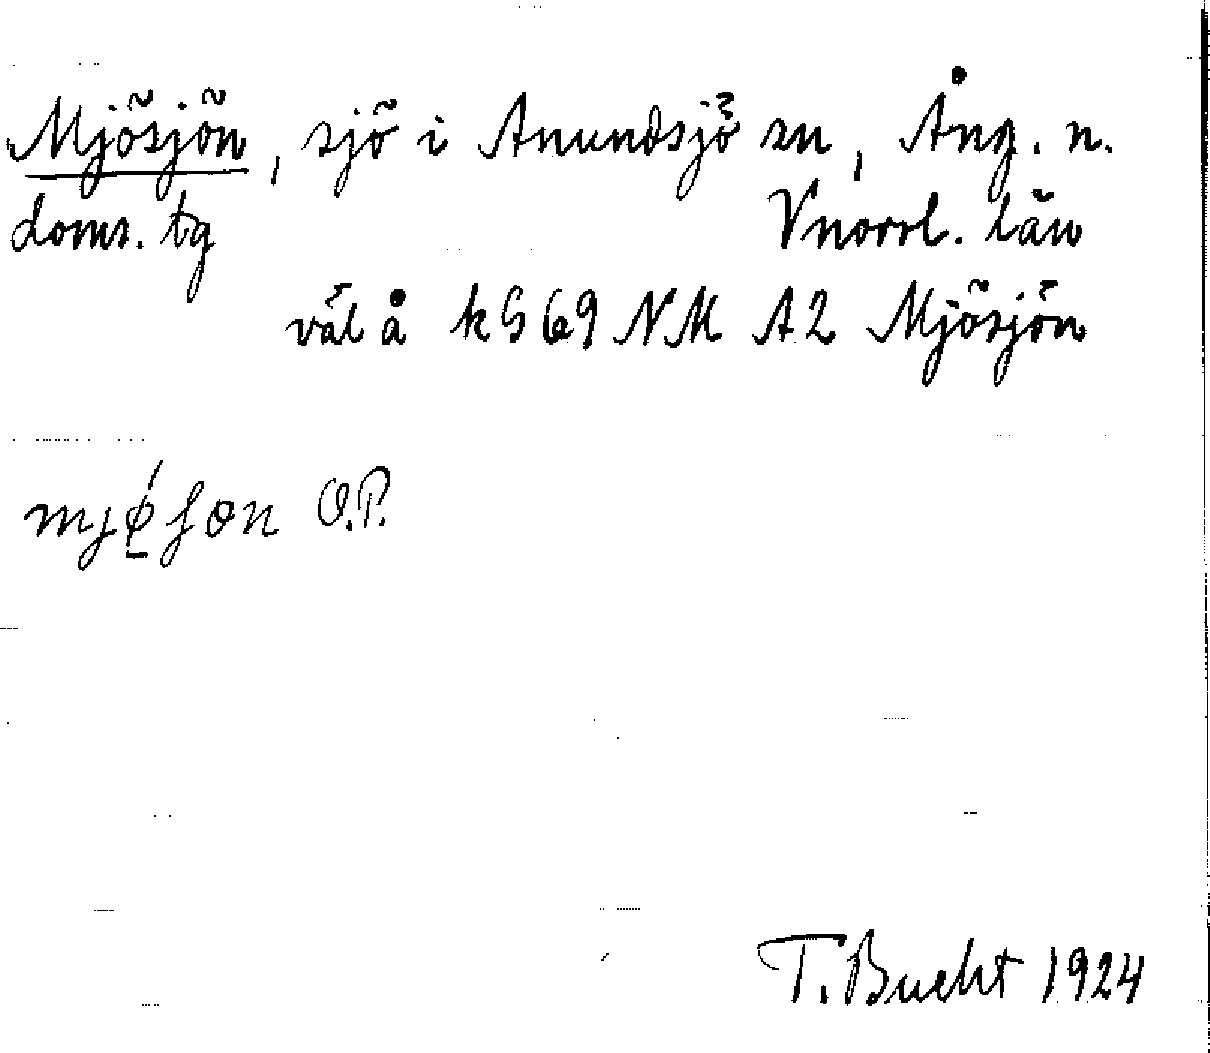 Mjösjön, sjö i Anundsjö sn, Ång. n.
doms. tg Vnorrl. län
väl å kG 69 NM A2 Mjösjön
O.P.
T. Bucht 1924